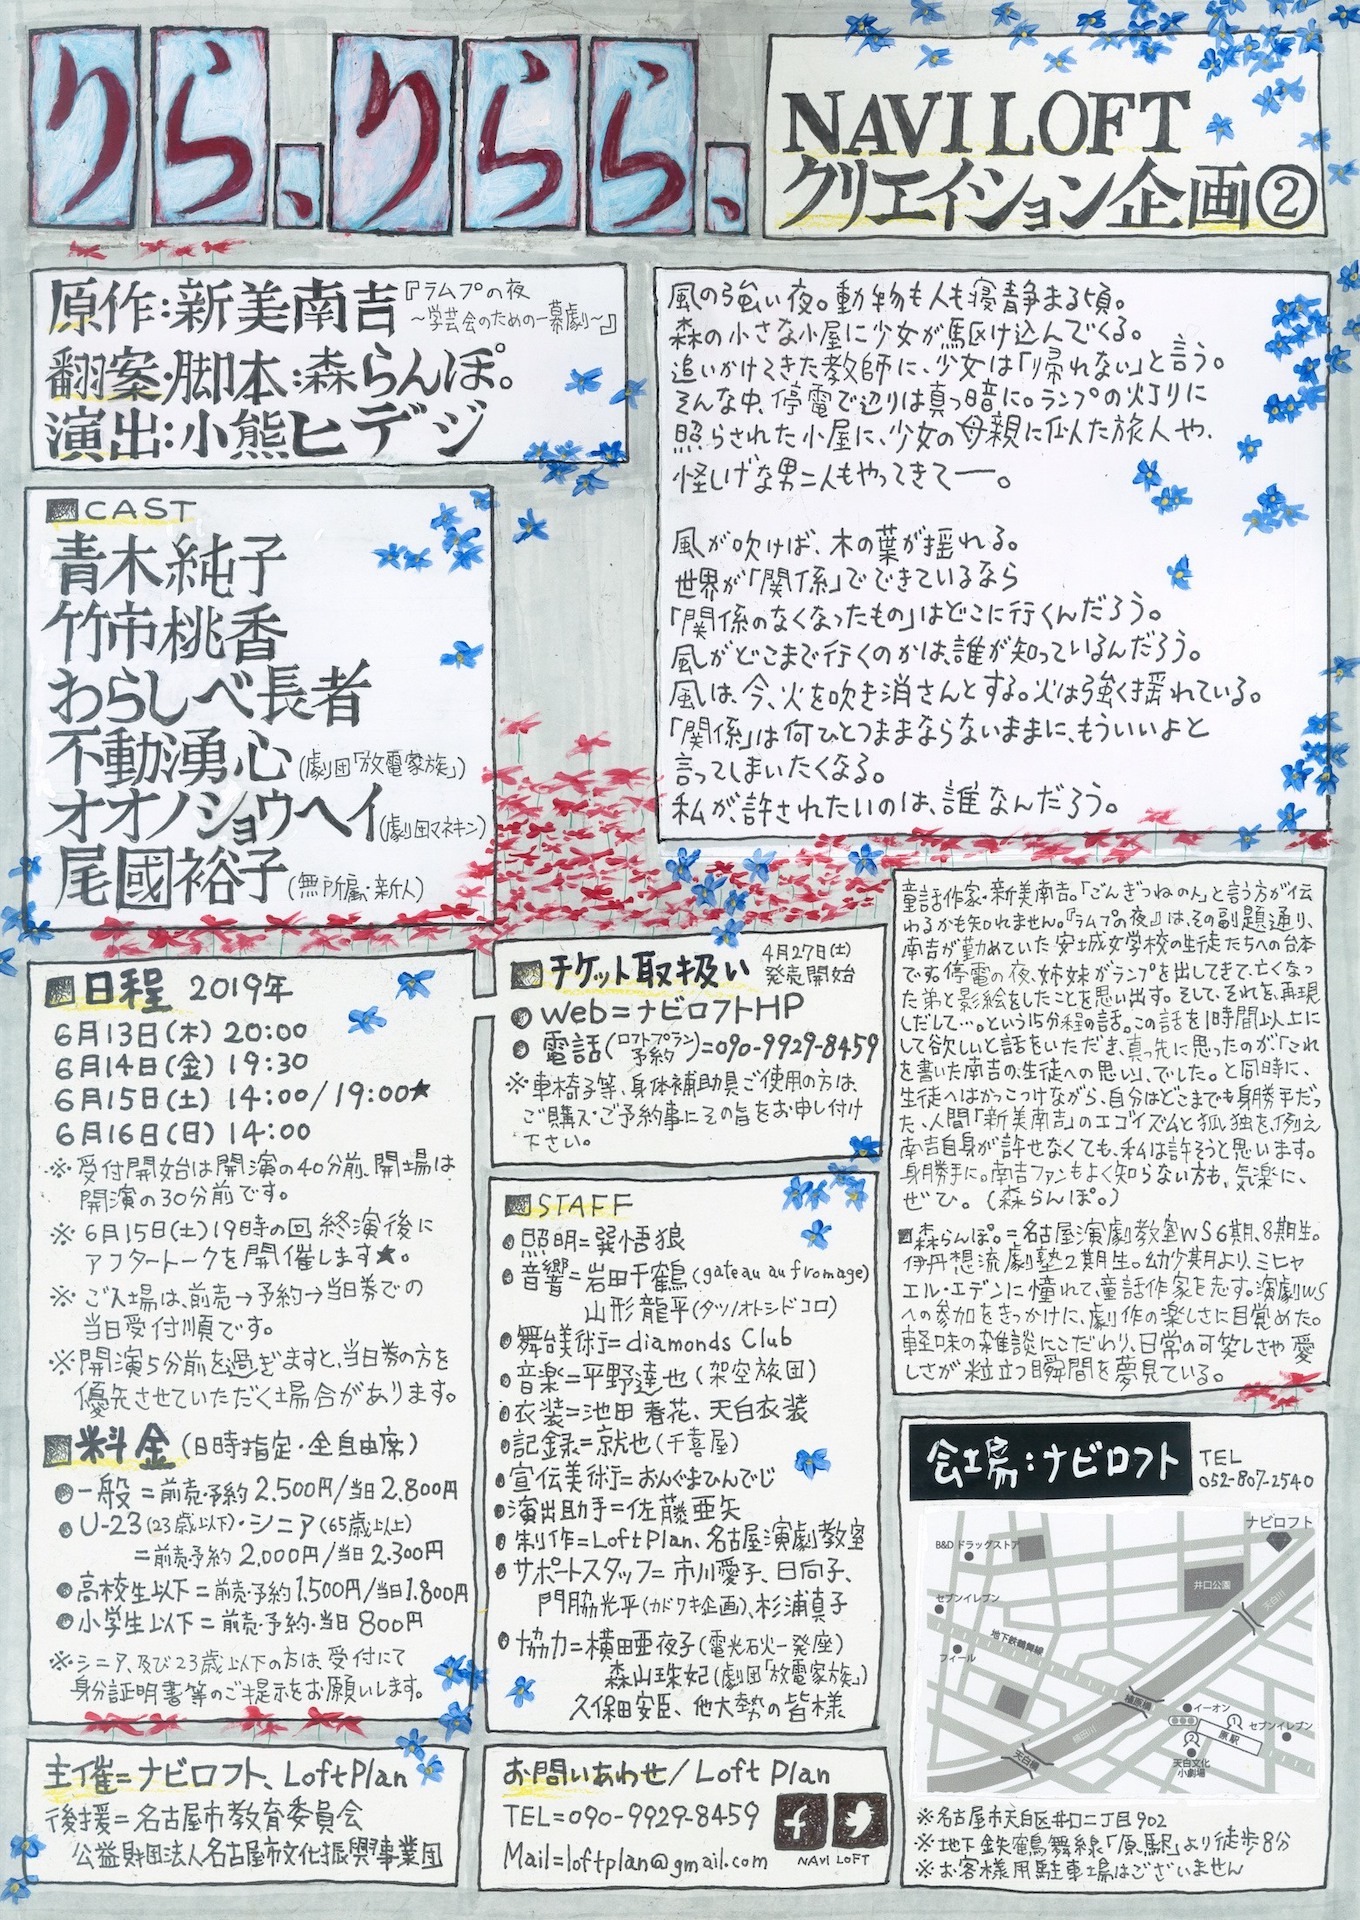 りら、りらら、
NAVI LOFT
クリエイション企画②
原作:新美南吉『ラムプの夜
〜学芸会のための一幕劇〜』
翻案・脚本:森らんぽ。
演出:小熊ヒデジ
風の強い夜。動物も人も寝静まる頃。
森の小さな小屋に少女が駆け込んでくる。
追いかけてきた教師に、少女は「帰れない」と言う。
そんな中、停電で辺りは真っ暗に。ランプの灯りに
照らされた小屋に、少女の母親に似た旅人や、
怪しげな男二人もやってきて――。
風が吹けば、木の葉が揺れる。
世界が「関係」でできているなら
「関係のなくなったもの」はどこに行くんだろう。
風がどこまで行くのかは、誰が知っているんだろう。
風は、今、火を吹き消さんとする。火は強く揺れている。
「関係」は何ひとつままならないままに、もういいよと
言ってしまいたくなる。
私が、許されたいのは、誰なんだろう。
■CAST
青木純子
竹市桃香
わらしべ長者
不動湧心(劇団「放電家族」)
オオノショウヘイ(劇団マネキン)
尾國裕子(無所属・新人)
■日程 2019年
6月13日(木) 20:00
6月14日(金) 19:30
6月15日(土) 14:00/19:00★
6月16日(日) 14:00
※受付開始は開演の40分前、開場は
開演の30分前です。
※6月15日(土)19時の回 終演後に
アフタートークを開催します★。
※ご入場は、前売→予約→当日券での
当日受付順です。
※開演5分前を過ぎますと、当日券の方を
優先させていただく場合があります。
■料金(日時指定・全自由席)
●一般=前売・予約 2,500円/当日2,800円
●U-23(23歳以下)・シニア(65歳以上)
=前売予約 2,000円/当日2,300円
●高校生以下=前売・予約1,500円/当日1,800円
●小学生以下=前売・予約・当日 800円
※シニア、及び23歳以下の方は、受付にて
身分証明書等のご提示をお願いします。
■チケット取扱い 4月27日(土)
発売開始
●web=ナビロフトHP
●電話(ロフトプラン
予約)=090-9929-8459
※車椅子等、身体補助具ご使用の方は、
ご購入・ご予約事にその旨をお申し付け
下さい。
■STAFF
●照明=巽悟狼
●音響=岩田千鶴(gateau au fromage)
山形龍平(タツノオトシドコロ)
●舞台美術=diamonds Club
●音楽=平野達也(架空旅団)
●衣装=池田春花、天白衣装
●記録=就也(千喜屋)
●宣伝美術=おんぐまひんでじ
●演出助手=佐藤亜矢
●制作=LoftPlan、名古屋演劇教室
●サポートスタッフ=市川愛子、日向子、
門脇光平(カドワキ企画)、杉浦真子
●協力=横田亜夜子(電光石火一発座)
森山珠妃(劇団「放電家族」)
久保田安臣、他大勢の皆様
童話作家・新美南吉。「ごんぎつねの人」と言う方が伝
わるかも知れません。『ラムプの夜』は、その副題通り、
南吉が勤めていた安城女学校の生徒たちへの台本
です。停電の夜、姉妹がランプを出してきて、亡くなっ
た弟と影絵をしたことを思い出す。そして、それを、再現
しだして…。という15分程の話。この話を1時間以上に
して欲しいと話をいただき、真っ先に思ったのが「これ
を書いた南吉の、生徒への思い」、でした。と同時に、
生徒へはかっこつけながら、自分はどこまでも身勝手だっ
た、人間「新美南吉」のエゴイズムと孤独を、例え
南吉自身が許せなくても、私は許そうと思います。
身勝手に。南吉ファンもよく知らない方も、気楽に、
ぜひ。(森らんぽ。)
■森らんぽ。=名古屋演劇教室WS6期、8期生。
伊丹想流劇塾2期生。幼少期より、ミヒャ
エル・エデンに憧れて、童話作家を志す。演劇WS
への参加をきっかけに、劇作の楽しさに目覚めた。
軽味の雑談にこだわり、日常の可笑しさや愛
しさが粒立つ瞬間を夢見ている。
会場:ナビロフト TEL
052-807-2540
ナビロフト
B&D ドラッグストア
井口公園
天白川
セブンイレブン
地下鉄鶴舞線
フィール
植原橋
イーオン
植田川
原駅
セブンイレブン
天白橋
天白文化
小劇場
※名古屋市天白区井口二丁目902
※地下鉄鶴舞線「原駅」より徒歩8分
※お客様用駐車場はございません
主催=ナビロフト、LoftPlan
後援=名古屋市教育委員会
公益財団法人名古屋市文化振興事業団
お問いあわせ/Loft Plan
TEL=090-9929-8459
Mail=loftplan@gmail.com
NAVI LOFT